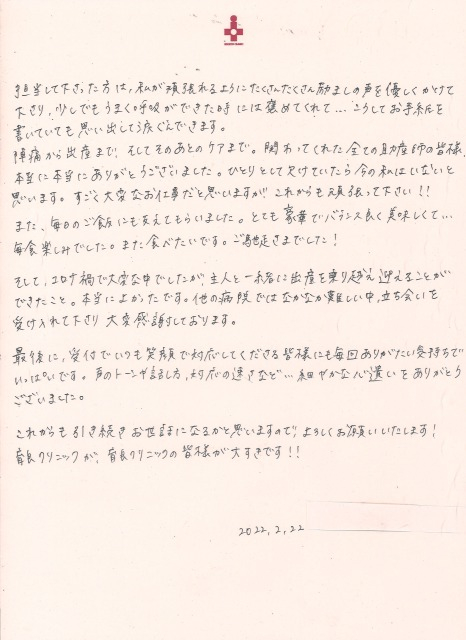 担当して下さった方は、私が頑張れるようにたくさんたくさん励ましの声を優しくかけて
下さり、少しでもうまく呼吸ができた時には褒めてくれて…こうしてお手紙を
書いていても思い出して涙ぐんできます。
陣痛から出産まで、そしてそのあとのケアまで。関わってくれた全ての助産師の皆様、
本当に本当にありがとうございました。ひとりとして欠けていたら今の私はいないと
思います。すごく大変なお仕事だと思いますが これからも頑張って下さい!!
また、毎日のご飯にも支えてもらいました。とても豪華でバランス良く美味しくて…
毎食楽しみでした。また食べたいです。ご馳走さまでした!
そして、コロナ禍で大変な中でしたが、主人と一緒に出産を乗り越え迎えることが
できたこと。本当によかったです。他の病院ではなかなか難しい中、立ち会いを
受け入れて下さり 大変感謝しております。
最後に、受付でいつも笑顔で対応してくださる皆様にも毎回ありがたい気持ちで
いっぱいです。声のトーンや話し方、対応の速さなど…細やかな心遣いをありがとう
ございました。
これからも引き続きお世話になるかと思いますので、よろしくお願いいたします!
育良クリニックが、育良クリニックの皆様が大すきです!!
2022.2.22